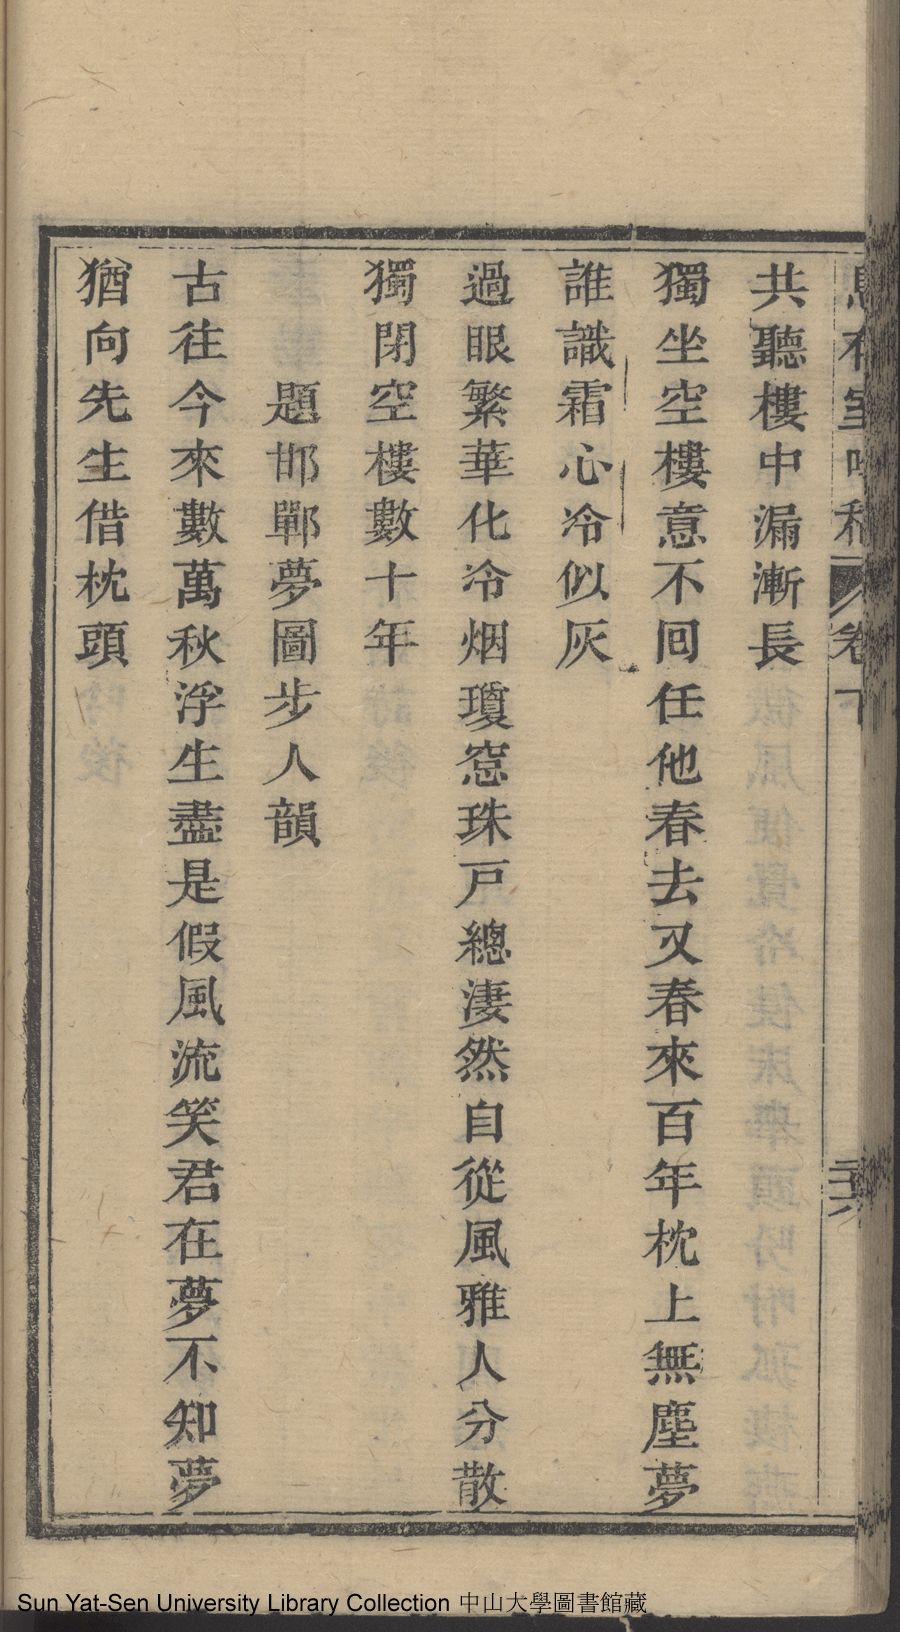 共聽樓中漏漸長
獨坐空樓意不囘任他春去又春來百年枕上無塵夢
誰識霜心冷似灰
過眼繁華化冷烟瓊窓珠戸總淒然自從風雅人分散
獨閉空樓數十年
題邯鄲夢圖步人韻
古往今來數萬秋浮生盡是假風流笑君在夢不知夢
猶向先生借枕頭
Sun Yat-Sen University Library Collection 中山大學圖書館藏